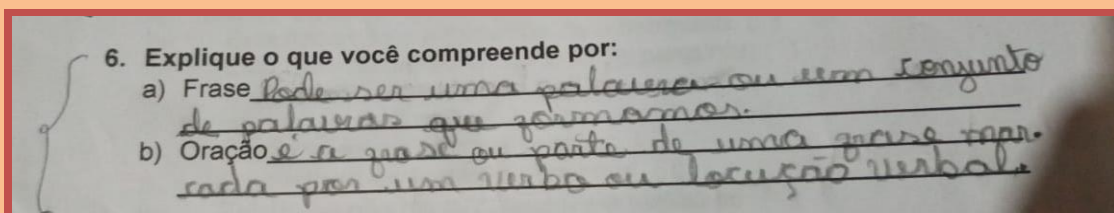 6. Explique o que você compreende por:
a) Frase Pode ser uma palavra ou um conjunto
de palavras que formamos.
b) Oração é a frase ou parte de uma frase mar-
cada por um verbo ou locução verbal.